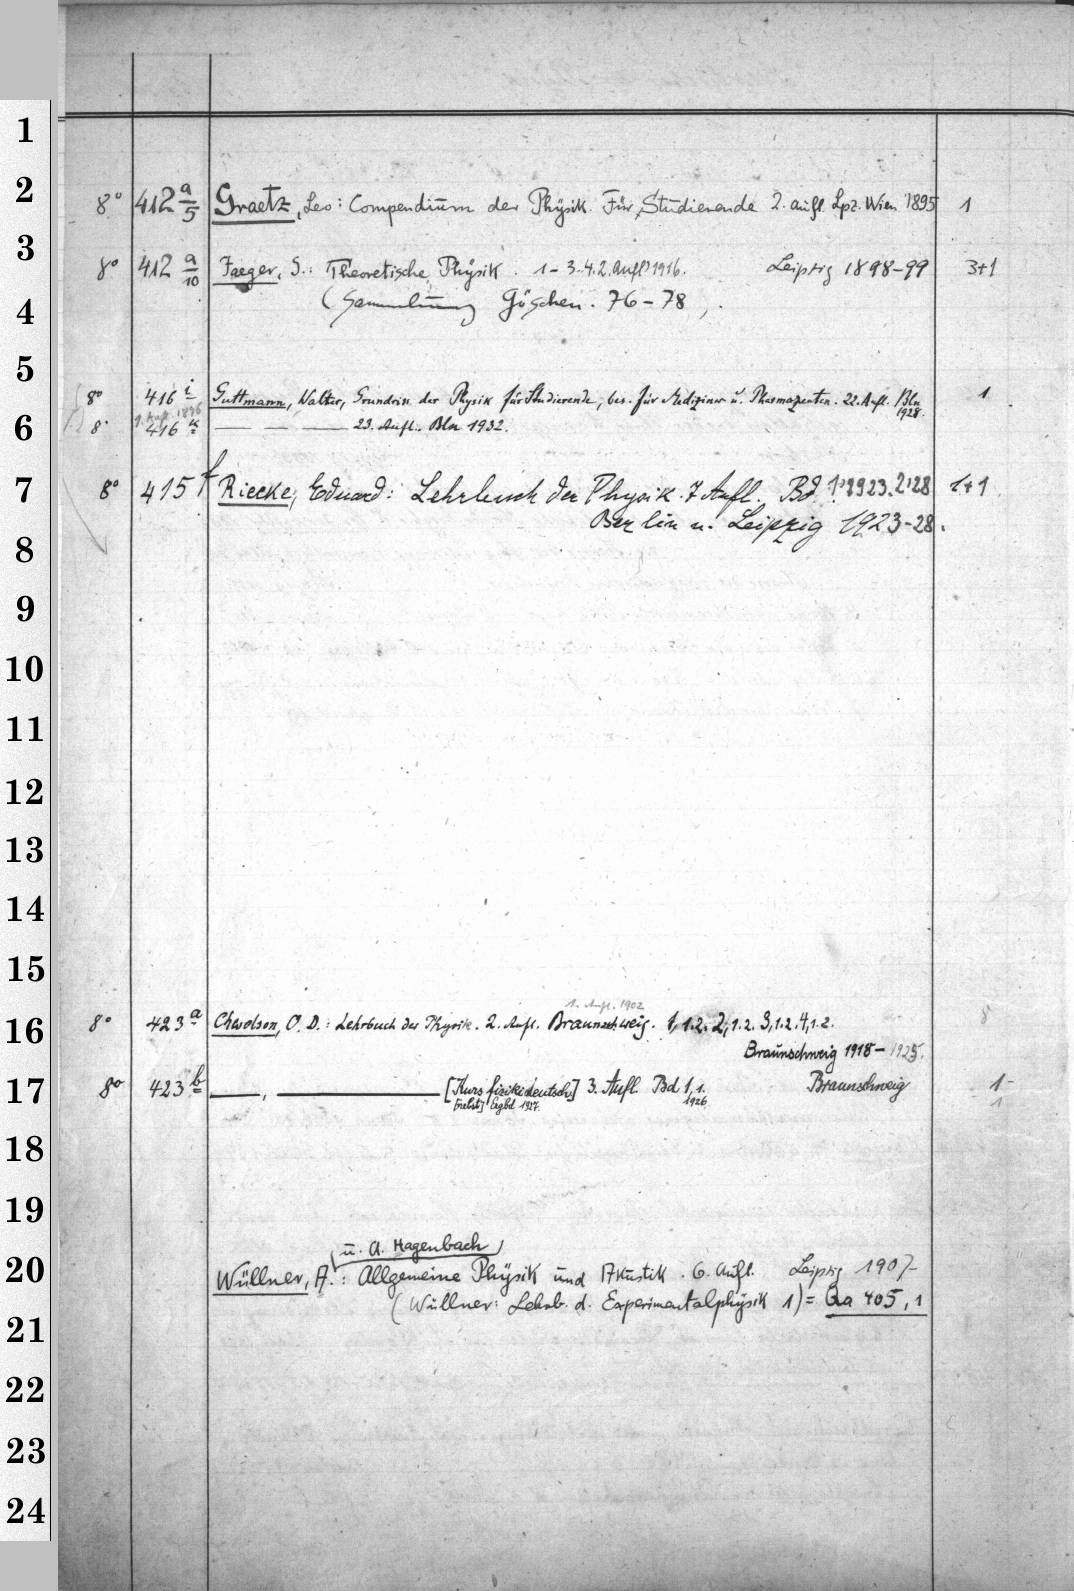 1
2
8° 412 a/5 Graetz, Leo: Compendium der Physik. Für Studierende 2. Aufl. Lpz. Wien 1895 1
3
8° 412 a/10 Jaeger, G.: Theoretische Physik. 1-3.4.2. Aufl 1916. Leipzig 1898-99 3+1
4
(Sammlung Göschen. 76-78).
5
8° 416 i Guttmann, Walter, Grundriss der Physik für Studierende, bes. für Mediziner u. Pharmazeuten. 22. Aufl. Bln 1928. 1
1. Aufl. 1896
6
8° 416 k — — — 23. Aufl. Bln 1932.
7
8° 415 f Riecke, Eduard: Lehrbuch der Physik. 7 Aufl. Bd. 1:1923. 2:28 1+1
Berlin u. Leipzig 1923-28.
8
9
10
11
12
13
14
15
1. Aufl. 1902
16
8° 423 a Chwolson, O. D.: Lehrbuch der Physik. 2. Aufl. Braunschweig. 1,1.2. 2,1.2. 3,1.2. 4,1.2. 8
Braunschweig 1918-1925.
17
8° 423 b —, — [Kurs fiziki deutsch] 3. Aufl. Bd 1,1. 1926 Braunschweig 1-
[nebst] Ergbd 1927. 1
18
19
u. A. Hagenbach
20
Wüllner, A.: Allgemeine Physik und Akustik. 6. Aufl. Leipzig 1907-
(Wüllner: Lehrb. d. Experimentalphysik 1) = Qa 405, 1
21
22
23
24